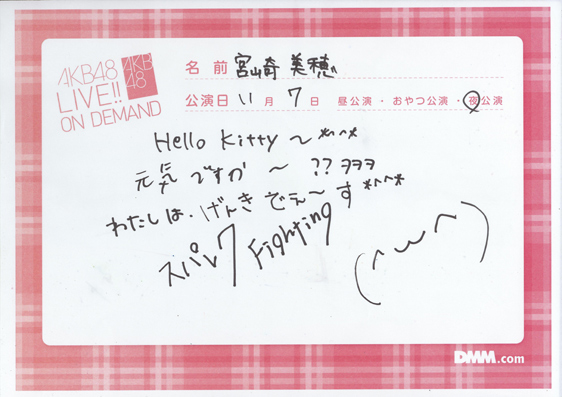 AKB48
LIVE!!
ON DEMAND
AKB
48
名前 宮崎 美穂
公演日 11月7日 昼公演・おやつ公演・夜公演
Hello Kitty ～*^-^*
元気ですか ～ ?? ヨヨヨ
わたしは、げんき でぇ～す *^^*
スパレワ Fighting
(^ω^)
DMM.com